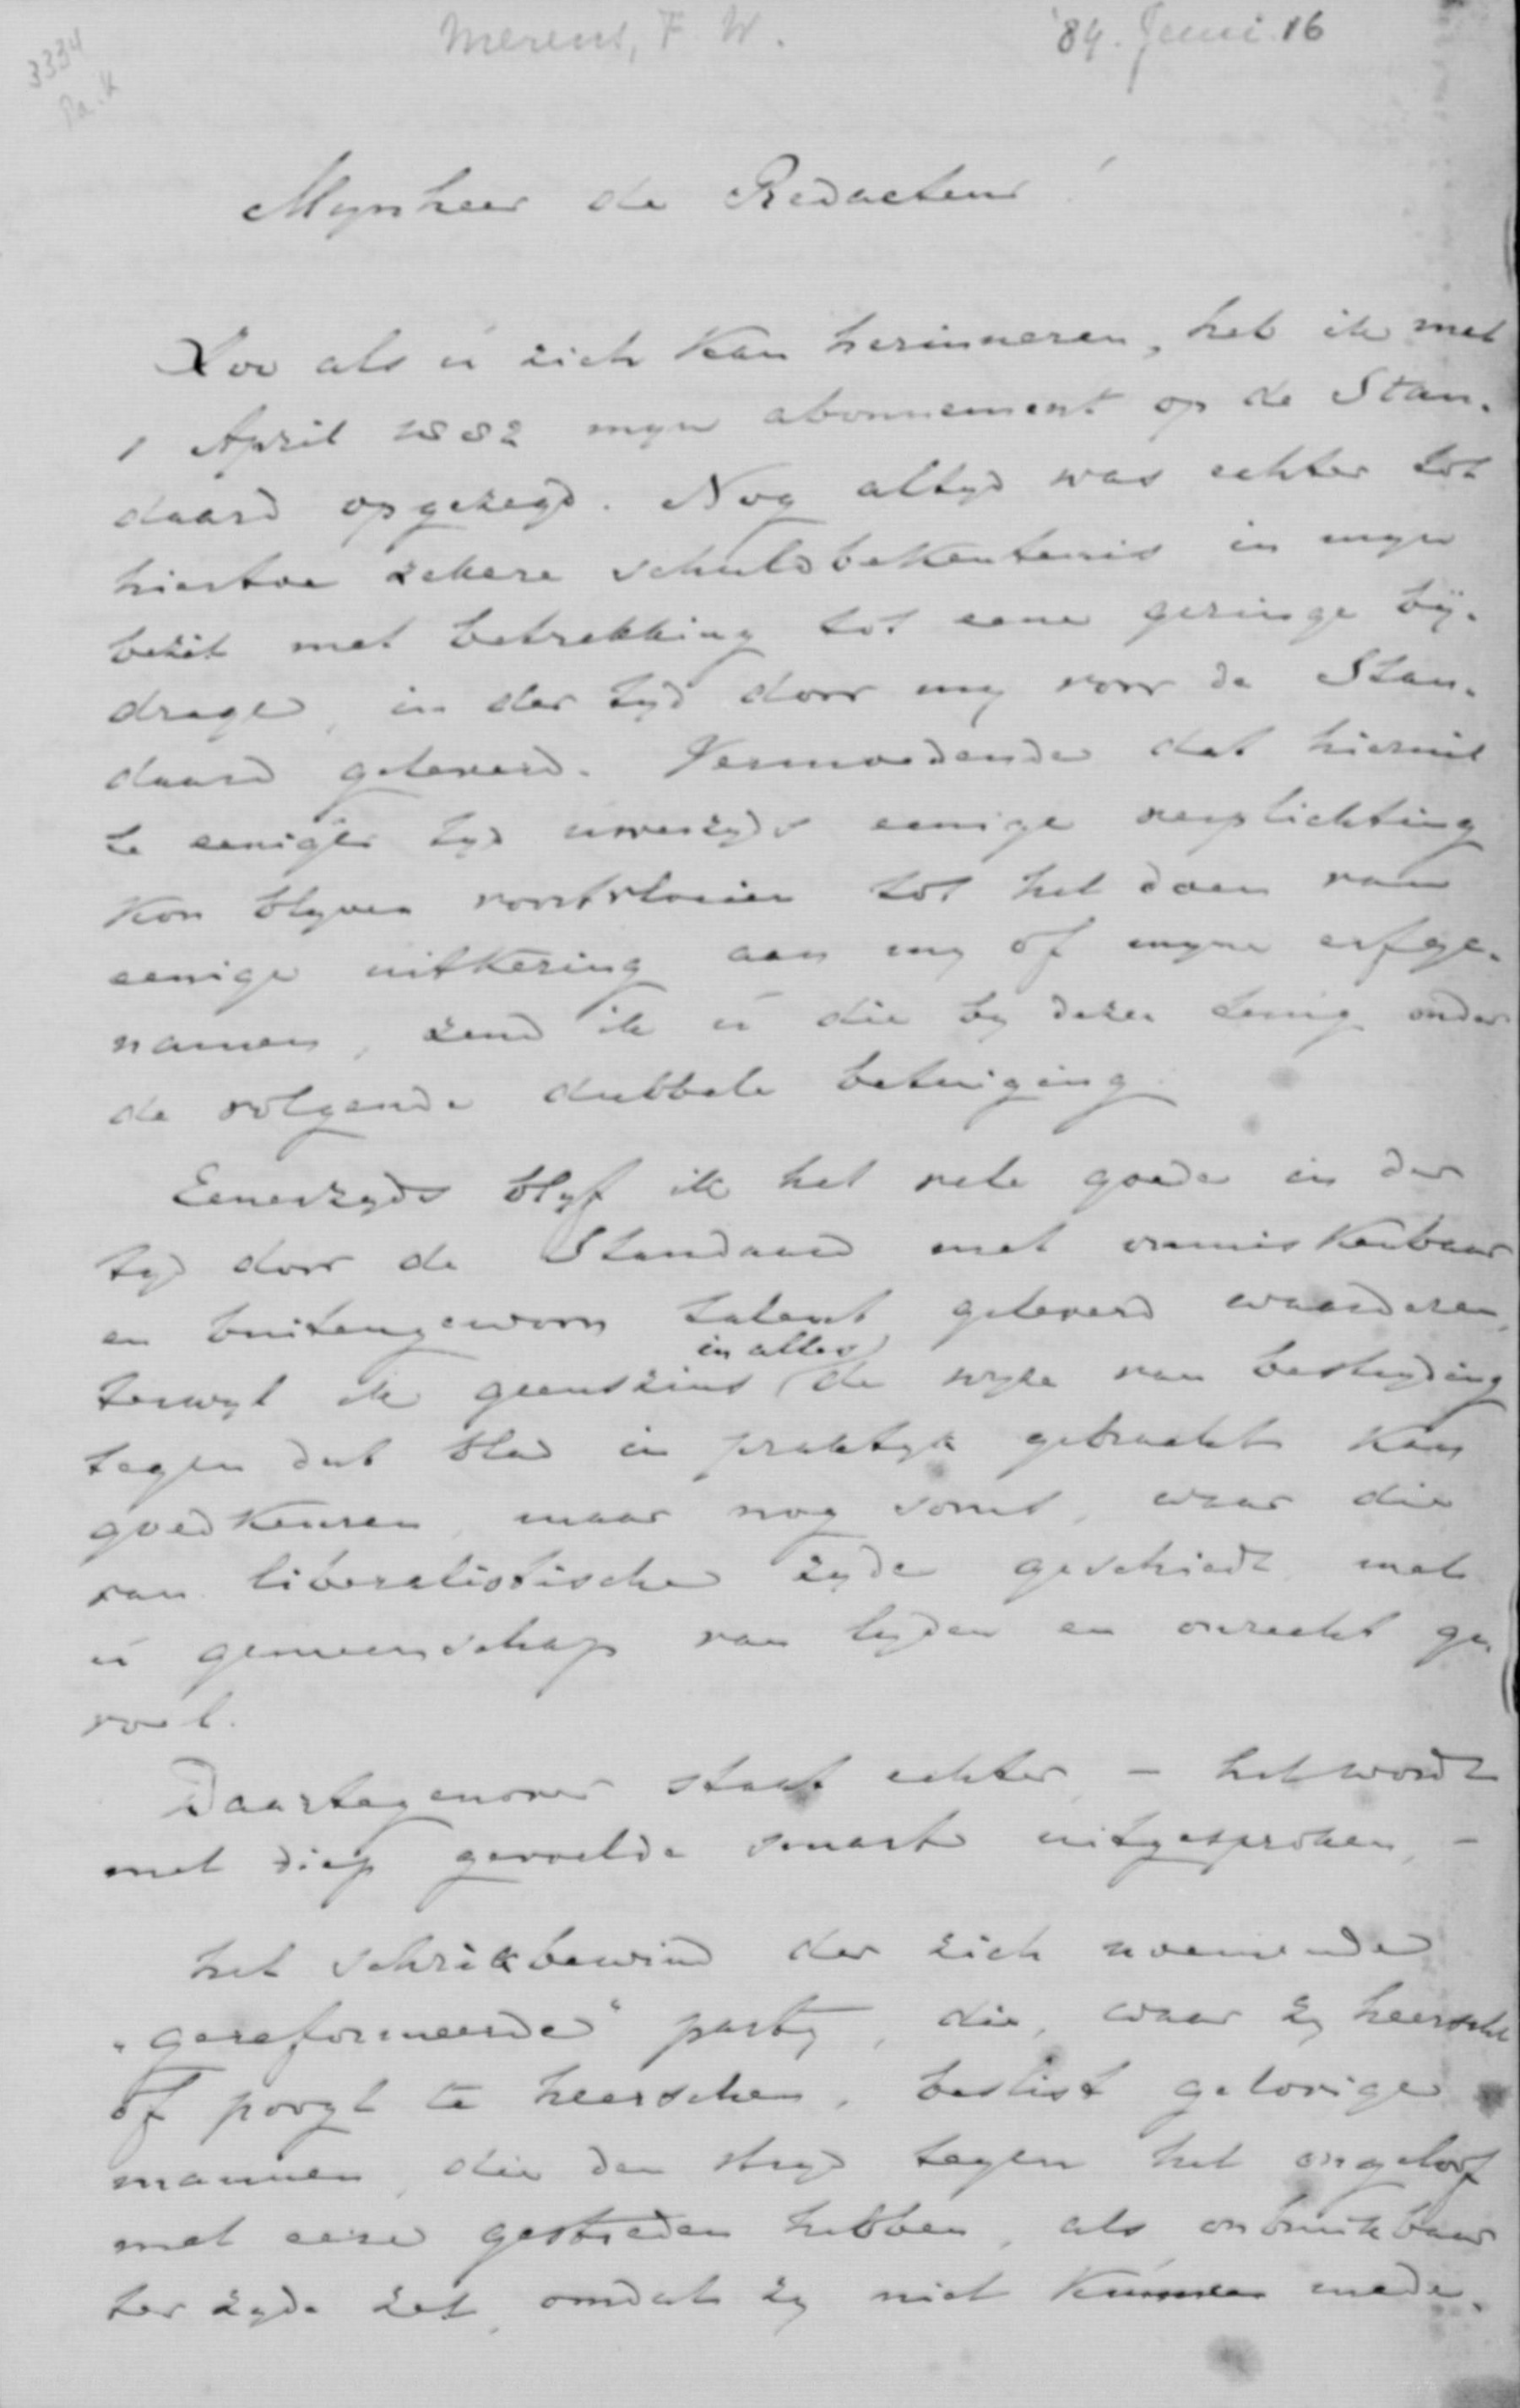 3334
Pa. K
Merens, F. W.
'84. Juni 16
Mynheer de Redacteur!
Zoo als ú zich kan herinneren, heb ik met
1 April 1882 myn abonnement op de Stan-
daard opgezegd. Nog altyd was echter tot
hiertoe zekere schuldbekentenis in myn
bezit met betrekking tot eene geringe by-
drage, in der tyd door my voor de Stan-
daard geleverd. Vermoedende dat hieruit
te eeniger tyd uwerzyds eenige verplichting
kon blyven voortvloeien tot het doen van
eenige uitkering aan my of myne erfge-
namen, zend ik ú die by dezen terug onder
de volgende dubbele betuiging.
Eenerzyds blyf ik het vele goede in der
tyd door de Standaard met onmiskenbaar
en buitengewoon talent geleverd waarderen,
terwyl ik geenszins in alles de wyze van bestryding
tegen dat blad in praktyk gebracht kan
goedkeuren, maar nog soms, waar die
van liberalistische zyde geschiedt, met
ú gemeenschap van lyden en onrecht ge-
voel.
Daartegenover staat echter, - het wordt
met diep gevoelde smart uitgesproken, -
het schrikbewind der zich noemende
"gereformeerde" party, die, waar zy heerscht
of poogt te heerschen, beslist gelovige
mannen, die den stryd tegen het ongeloof
met eere gestreden hebben, als onbruikbaar
ter zyde zet, omdat zy niet kunnen mede-